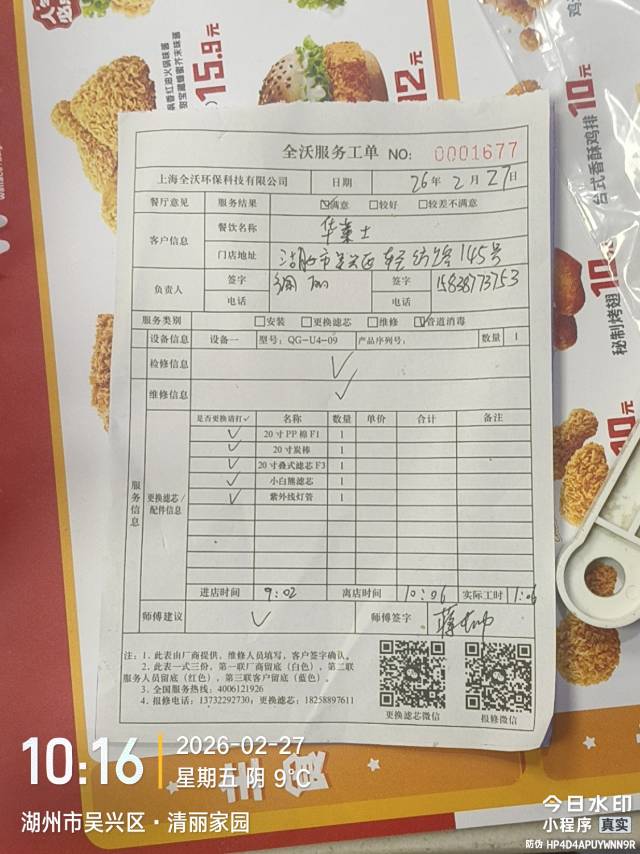 15.9元
12元
鸡
10元
台式香酥鸡排
10元
秘制烤翅
10元
全沃服务工单 NO: 0001677
上海全沃环保科技有限公司 日期 26年2月27日
餐厅意见 服务结果 ☑满意 □较好 □较差不满意
客户信息 餐饮名称 华莱士
门店地址 湖州市吴兴区 轻纺路145号
负责人 签字 签字 15838773753
电话 电话
服务类别 □安装 □更换滤芯 □维修 ☑管道消毒
设备信息 设备一 型号: QG-U4-09 产品序列号: 数量 1
检修信息 ✓
维修信息 ✓
服务信息 更换滤芯/配件信息
是否更换请打✓ 名称 数量 单价 合计 备注
✓ 20寸PP棉F1 1
✓ 20寸炭棒 1
✓ 20寸叠式滤芯F3 1
✓ 小白熊滤芯 1
✓ 紫外线灯管 1
进店时间 9:02 离店时间 10:06 实际工时 1:06
师傅建议 ✓ 师傅签字
注: 1. 此表由厂商提供, 维修人员填写, 客户签字确认。
2. 此表一式三份, 第一联厂商留底 (白色), 第二联
服务人员留底 (红色), 第三联客户留底 (蓝色)。
3. 全国服务热线: 4006121926
4. 报修电话: 13732292730; 更换滤芯: 18258897611
更换滤芯微信 报修微信
10:16
2026-02-27
星期五 阴 9℃
湖州市吴兴区·清丽家园
今日水印
小程序 真实
防伪 HP4D4APUYWNN9R